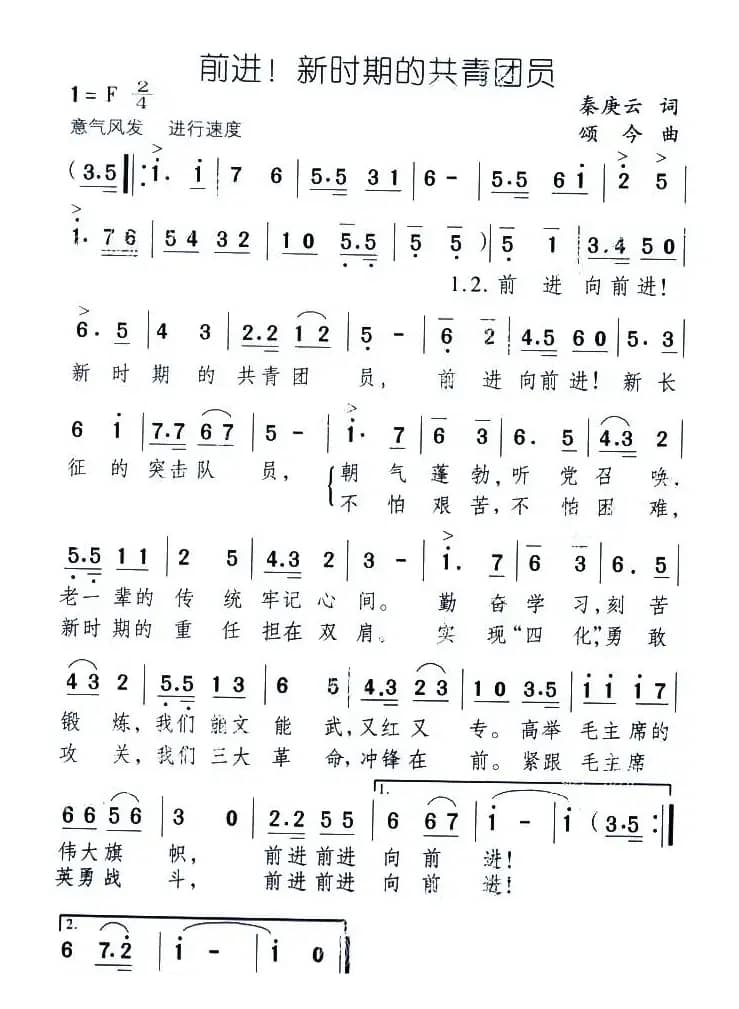 前进！新时期的共青团员
1 = F 2/4
秦庚云 词
意气风发 进行速度
颂 今 曲
(3.5 ‖: 1. 1 | 7 6 | 5.5 3 1 | 6 - | 5.5 6 1 | 2 5 |
1. 7 6 | 5 4 3 2 | 1 0 5.5 | 5 5 ) | 5 1 | 3.4 5 0 |
1.2. 前 进 向前进！
6. 5 | 4 3 | 2.2 1 2 | 5 - | 6 2 | 4.5 6 0 | 5. 3 |
新 时 期 的 共青团 员， 前 进 向前进！ 新 长
6 1 | 7.7 6 7 | 5 - | 1. 7 | 6 3 | 6. 5 | 4.3 2 |
征 的 突击队 员， 朝 气 蓬 勃，听 党 召 唤．
不 怕 艰 苦，不 怕 困 难，
5.5 1 1 | 2 5 | 4.3 2 | 3 - | 1. 7 | 6 3 | 6. 5 |
老一辈的 传 统 牢记 心 间。 勤 奋 学 习，刻 苦
新时期的 重 任 担在 双 肩。 实 现“四 化”，勇 敢
4 3 2 | 5.5 1 3 | 6 5 | 4.3 2 3 | 1 0 3.5 | 1 1 1 7 |
锻 炼，我们 能文 能 武，又红 又 专。高举 毛主席的
攻 关，我们 三大 革 命，冲锋 在 前。紧跟 毛主席
1.
6 6 5 6 | 3 0 | 2.2 5 5 | 6 6 7 | 1 - | 1 (3.5 :‖
伟大旗 帜， 前进前进 向 前 进！
英勇战 斗， 前进前进 向 前 进！
2.
6 7.2 | 1 - | 1 0 ‖